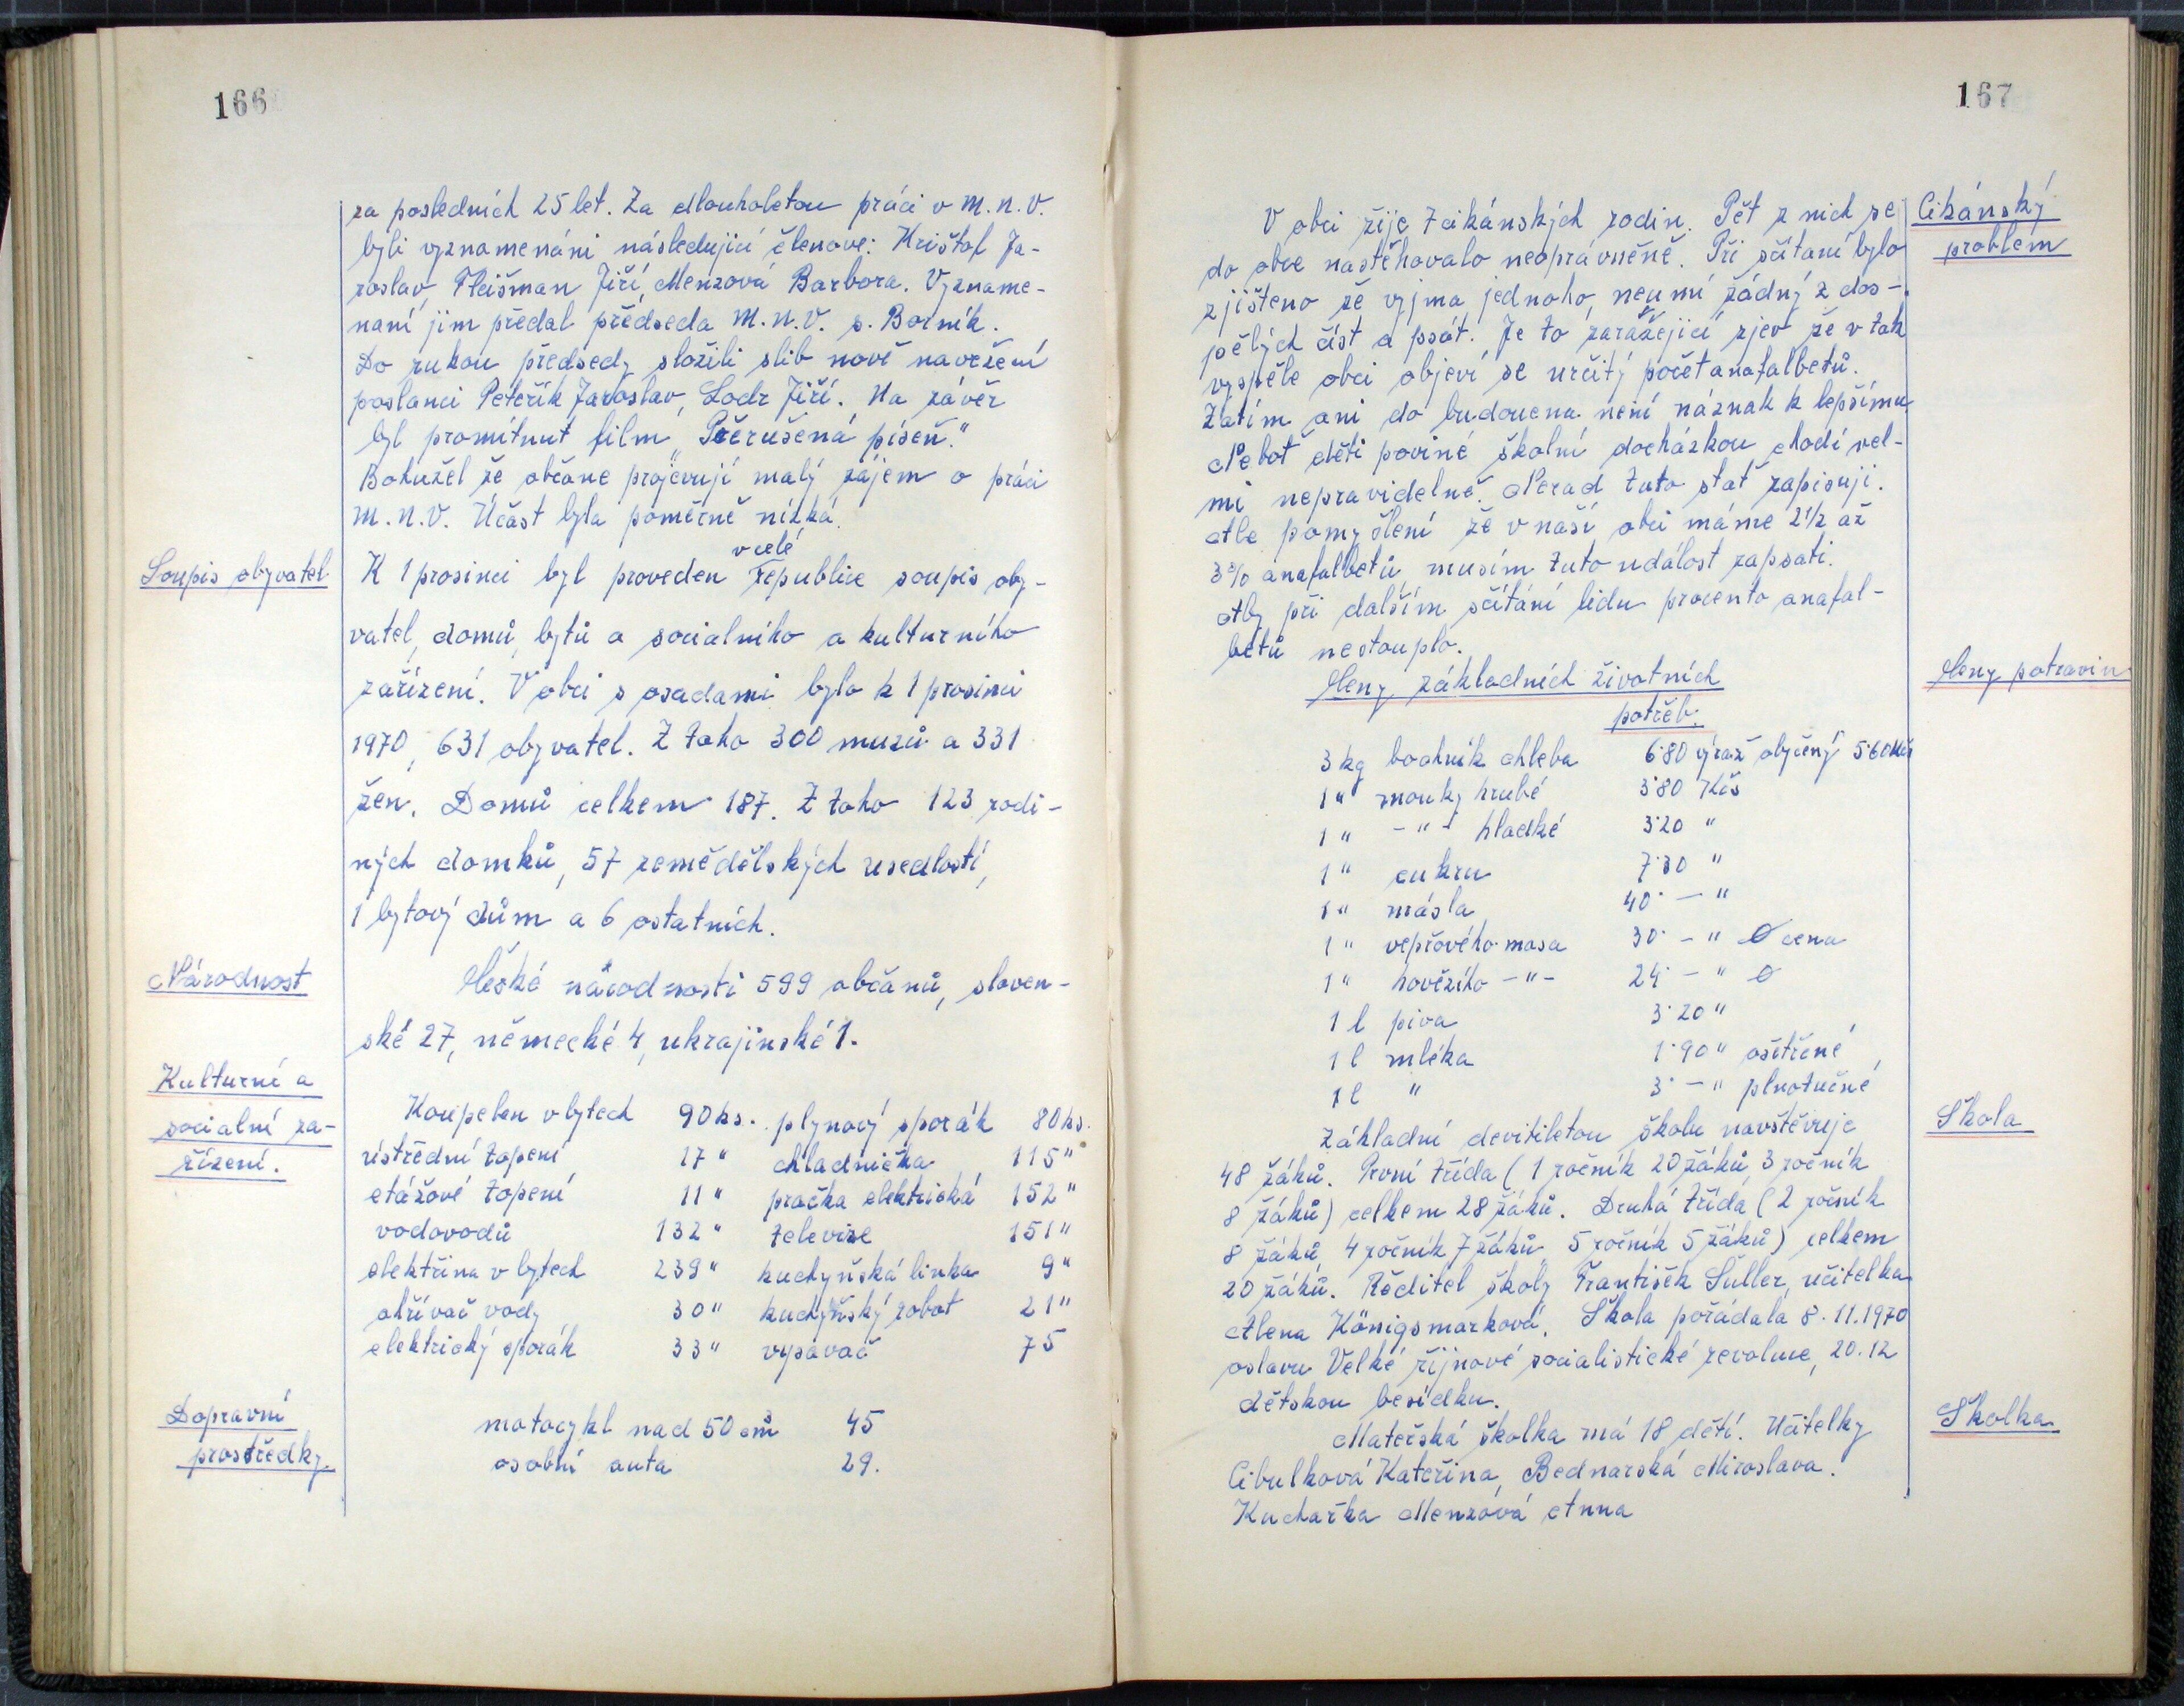 166
za posledních 25 let. Za dlouholetou práci v M.N.V.
byli vyznamenáni následující členove: Krištof Ja-
roslav, Fleišman Jiří, Menzová Barbora. Vyzname-
naní jim předal předseda M.N.V. s. Borník.
Do rukou předsedy složili slib nově navržení
poslanci Peteřík Jaroslav, Lodr Jiří. Na závěr
byl promítnut film „Přerušená píseň."
Bohužel že občane projevují malý zájem o práci
M.N.V. Účast byla poměrně nízká.
Soupis obyvatel
v celé
K 1 prosinci byl proveden republice soupis oby-
vatel, domů, bytů a socialního a kulturního
zařízení. V obci s osadami bylo k 1 prosinci
1970, 631 obyvatel. Z toho 300 mužů a 331
žen. Domů celkem 187. Z toho 123 rodi-
ných domků, 57 zemědělských usedlostí,
1 bytový dům a 6 ostatních.
Národnost
České národnosti 599 občanů, sloven-
ské 27, německé 4, ukrajinské 1.
Kulturní a
socialní za-
řízení.
Koupelen v bytech 90 ks. plynový sporák 80 ks.
ústřední topení 17 " chladnička 115 "
etážové topení 11 " pračka elektrická 152 "
vodovodů 132 " televize 151 "
elektřina v bytech 239 " kuchyňská linka 9 "
ohřívač vody 30 " kuchyňský robot 21 "
elektrický sporák 33 " vysavač 75
Dopravní
prostředky.
motocykl nad 50 cm 45
osobní auta 29.
167
Cikánský
problem
V obci žije 7 cikánských rodin. Pět z nich se
do obce nastěhovalo neoprávněně. Při sčítaní bylo
zjišteno že vyjma jednoho, neumí žádný z dos-
pělých číst a psát. Je to zarážející zjev že v tak
vyspěle obci objeví se určitý počet anafalbetů.
Zatím ani do budoucna není náznak k lepšímu
Neboť děti poviné školní docházkou chodí vel-
mi nepravidelně. Nerad tuto stať zapisuji.
Ale pomyšlení že v naší obci máme 2 1/2 až
3% anafalbetů musím tuto událost zapsati.
Aby při dalším sčítání lidu procento anafal-
betů nestouplo.
Ceny potravin
Ceny základních životních
potřeb.
3 kg bochník chleba 6·80 výraž. obyčený 5·60 Kčs
1 " mouky hrubé 3·80 Kčs
1 " -"- hladké 3·20 "
1 " cukru 7·80 "
1 " másla 40·- "
1 " vepřového masa 30·- " Ø cena
1 " hovězího -"- 24·- " Ø
1 l piva 3·20 "
1 l mléka 1·90 " ošetřené
1 l " 3·- " plnotučné
Škola
Základní devitiletou školu navštěvuje
48 žáků. První třída (1 ročník 20 žáků, 3 ročník
8 žáků) celkem 28 žáků. Druhá třída (2 ročník
8 žáků, 4 ročník 7 žáků, 5 ročník 5 žáků) celkem
20 žáků. Ředitel školy František Šuller, učitelka
Alena Königsmarková. Škola pořádala 8.11.1970
oslavu Velké říjnové socialistické revoluce, 20.12
dětskou besídku.
Školka
Mateřská školka má 18 dětí. Učitelky
Cibulková Kateřina, Bednarská Miroslava.
Kuchařka Menzová Anna